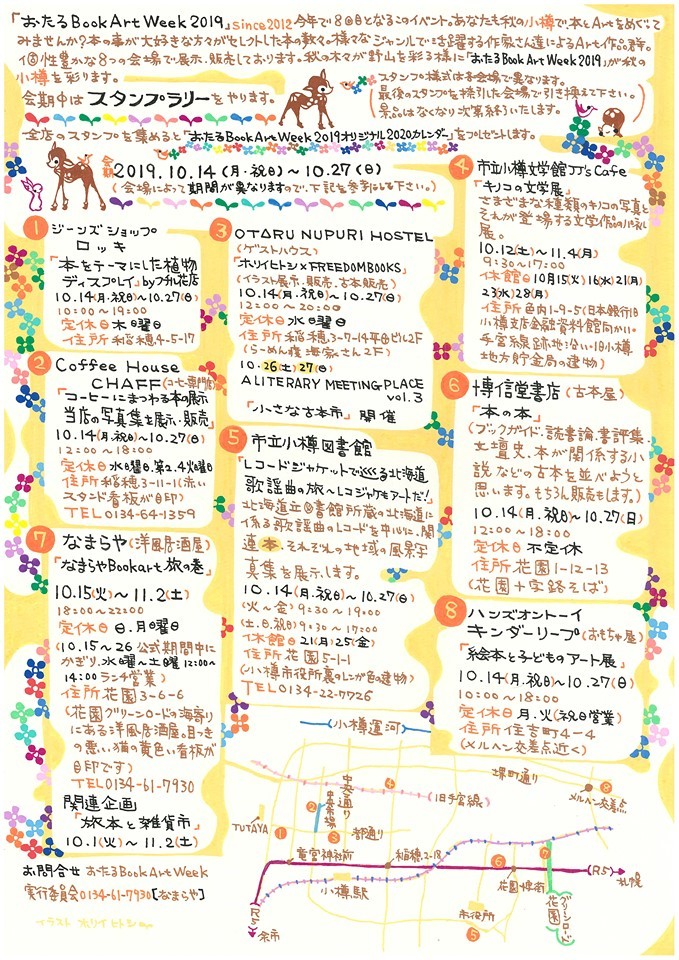 「おたるBook Art Week 2019」since2012 今年で8回目となるこのイベント。あなたも秋の小樽で、本とArtをめぐって
みませんか?本の事が大好きな方々がセレクトした本の数々。様々なジャンルで活躍する作家さん達によるArt作品群。
個性豊かな8つの会場で展示、販売しております。秋の木々が野山を彩る様に「おたるBook Art Week 2019」が秋の
小樽を彩ります。
会期中はスタンプラリーをやります。
スタンプ様式は各会場で異なります。
最後のスタンプを捺印した会場で引き換え下さい。
景品はなくなり次第終了いたします。
全店のスタンプを集めると「おたるBook Art Week 2019オリジナル2020カレンダー」をプレゼントします。
会期 2019.10.14(月・祝日)~10.27(日)
(会場によって期間が異なりますので、下記を参考にして下さい。)
1 ジーンズショップ
ロッキ
「本をテーマにした植物
ディスプレイ」by プチ花店
10.14(月・祝日)~10.27(日)
10:00~19:00
定休日 木曜日
住所 稲穂4-5-17
2 Coffee House
CHAFF(コーヒー専門店)
「コーヒーにまつわる本の展示
当店の写真集を展示・販売」
10.14(月.祝日)~10.27(日)
12:00~18:00
定休日 水曜日.第2.4火曜日
住所 稲穂3-11-1(赤い
スタンド看板が目印)
TEL0134-64-1359
3 OTARU NUPURI HOSTEL
(ゲストハウス)
「ホリイヒトシ×FREEDOMBOOKS」
(イラスト展示.販売.古本販売)
10.14(月.祝日)~10.27(日)
12:00~20:00
定休日 水曜日
住所 稲穂3-7-14平田ビル2F
(らーめん穫 海家さん2F)
10.26(土)27(日)
A LITERARY MEETING PLACE
vol.3
「小さな古本市」開催
4 市立小樽文学館JJ's Cafe
「キノコの文学展」
さまざまな種類のキノコの写真と
それが登場する文学作品の小さな
展。
10.12(土)~11.4(月)
9:30~17:00
休館日 10月15(火)16(水)21(月)
23(水)28(月)
住所 色内1-9-5(日本銀行旧
小樽支店金融資料館向かい・
手宮線跡地沿い・旧小樽
地方貯金局の建物)
5 市立小樽図書館
「レコードジャケットで巡る北海道
歌謡曲の旅~レコジャケもアートだ!」
北海道立図書館所蔵の北海道に
係る歌謡曲のレコードを中心に、関
連本、それぞれの地域の風景写
真集を展示します。
10.14(月.祝日)~10.27(日)
(火~金)9:30~19:00
(土.日.祝)9:30~17:00
休館日 21(月)25(金)
住所 花園5-1-1
(小樽市役所裏のレンガ色の建物)
TEL0134-22-7726
6 博信堂書店(古本屋)
「本の本」
(ブックガイド.読書論.書評集
文壇史.本が関係する小
説などの古本を並べようと
思います。もちろん販売もします。)
10.14(月.祝日)~10.27(日)
12:00~18:00
定休日 不定休
住所 花園1-12-13
(花園十字路そば)
7 なまらや(洋風居酒屋)
「なまらやBookart 旅の巻」
10.15(火)~11.2(土)
18:00~22:00
定休日 日.月曜日
(10.15~26 公式期間中に
かぎり.水曜~土曜 12:00~
14:00ランチ営業)
住所 花園3-6-6
(花園グリーンロードの海寄り
にある洋風居酒屋。目つき
の悪い猫の黄色い看板が
目印です)
TEL0134-61-7930
関連企画
「旅本と雑貨市」
10.1(火)~11.2(土)
8 ハンズオントーイ
キンダーリープ(おもちゃ屋)
「絵本と子どものアート展」
10.14(月.祝日)~10.27(日)
10:00~18:00
定休日 月.火(祝日営業)
住所 住吉町4-4
(メルヘン交差点近く)
お問合せ おたるBook Art Week
実行委員会 0134-61-7930[なまらや]
イラスト ホリイ ヒトシ
小樽運河
堺町通り
8
メルヘン交差点
4
(旧手宮線)
中央通り
中央市場
2
TUTAYA
1
3
都通り
竜宮神社前
稲穂2-18
小樽駅
6
花園
7
(R5)
札幌
R5
余市
市役所
5
花園グリーンロード